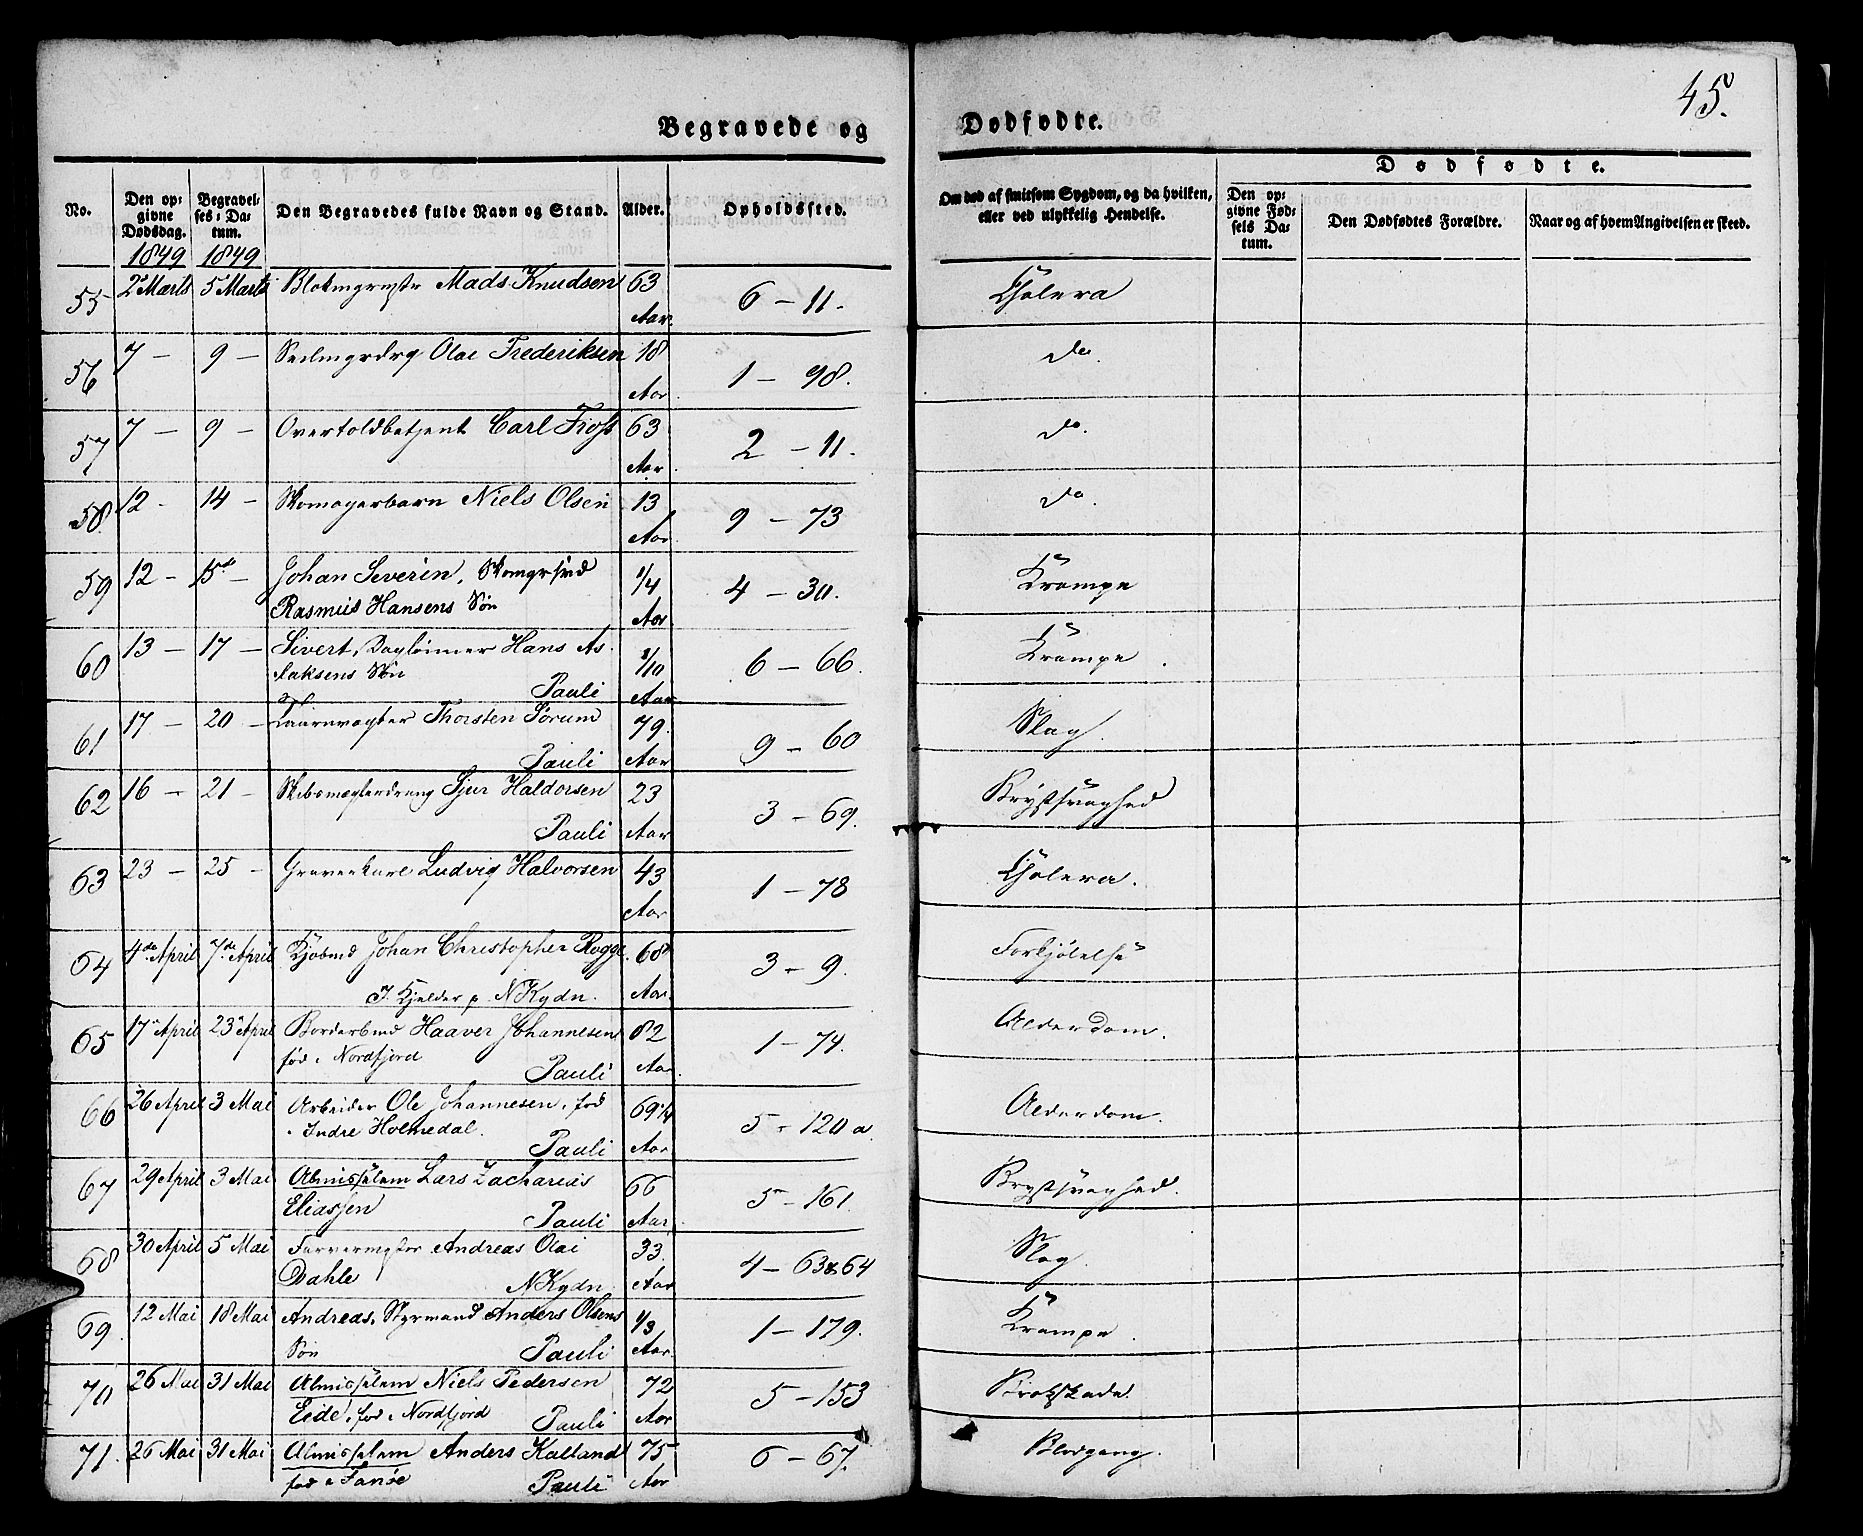 45.
Begravede og Dødfødte.
Dødfødte.
No.
Den opgivne Dødsdag.
Begravelses-Datum.
Den Begravedes fulde Navn og Stand.
Alder.
Opholdssted.
Om død af smitsom Sygdom, og da hvilken, eller ved ulykkelig Hendelse.
Den opgivne Fødsels Datum.
Den Dødfødtes Forældre.
Naar og af hvem Angivelsen er skeed.
1849 1849
55 2 Marts 5 Marts Mads Knudsen 63 Aar. 6 – 11. Cholera
56 7 – 9 – Olai Frederiksen 18 Aar. 1 – 98. do.
57 7 – 9 – Overtoldbetjent Carl Frost 63 Aar. 2 – 11. do.
58. 12 - 14 – Skomagerbarn Niels Olsen 13 Aar 9 – 73 do.
59 12 – 15de – Johan Severin, Skomgrsvd
Rasmus Hansens Søn 1/4 Aar 4 – 30. Krampe
60 13 – 17 – Sivert, Dagløinner Hans As-
laksens Søn Pauli /10 Aar 6 – 66. Krampe.
61 17 – 20 – Taarnvægter Thorsten Sørum
Pauli 79. Aar 9 – 60 Slag.
62 16 – 21 – Sjur Haldorsen
Pauli 23 Aar 3 – 69. Brÿstsvaghed
63 23 – 25 – Graverkarl Ludvig Halvorsen 43 Aar 1 – 78 Cholera.
64 4de April 7de April Kjøbmd Johan Christopher Rogge
J. Kjelder p. NKgdn. 68 Aar. 3 – 9. Forkjølelse
65 17 April 23 April Haaver Johannesen
fød i Nordfjord Pauli 82 Aar 1 – 74. Alderdom.
66 26 April 3 Mai Arbeider Ole Johannesen, fød
i Indre Holmedal. Pauli 69 1/4 Aar 5 – 120 a. Alderdom.
67 29 April 3 Mai Almisselem Lars Zacharias
Eliassen Pauli 66 Aar. 5 – 161. Brystsvaghed.
68 30 April 5 Mai Farvermester Andreas Olai
Dahle NKgdn. 33. Aar 4 – 63 & 64 Slag.
69. 12 Mai 18 Mai Andreas, Styrmand Anders Olsens
Søn Pauli 1/3 Aar. 1 – 179. Krampe.
70 26 Mai 31 Mai Almisselem Niels Pedersen
Eide, fød i Nordfjord Pauli 72 Aar 5 – 153
71. 26 Mai 31 Mai Almisselem Anders Kalland
fød i Fanøe Pauli 75 Aar 6 – 67. Blodgang.